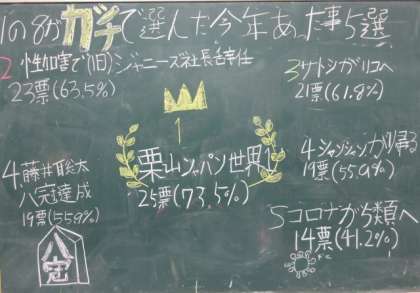 1の8がガチで選んだ今年あった事5選
1
栗山ジャパン世界1
25票(73.5%)
2 性加害で(旧)ジャニーズ社長辞任
23票(63.5%)
3サトシがリコへ
21票(61.8%)
4.藤井聡太
八冠達成
19票(55.9%)
八冠
4シャンシャンが帰る
19票(55.9%)
5コロナが5類へ
14票(41.2%)